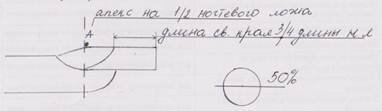 апекс на 1/2 ногтевого ложа
A
длина св. края 3/4 длины н.л
50%